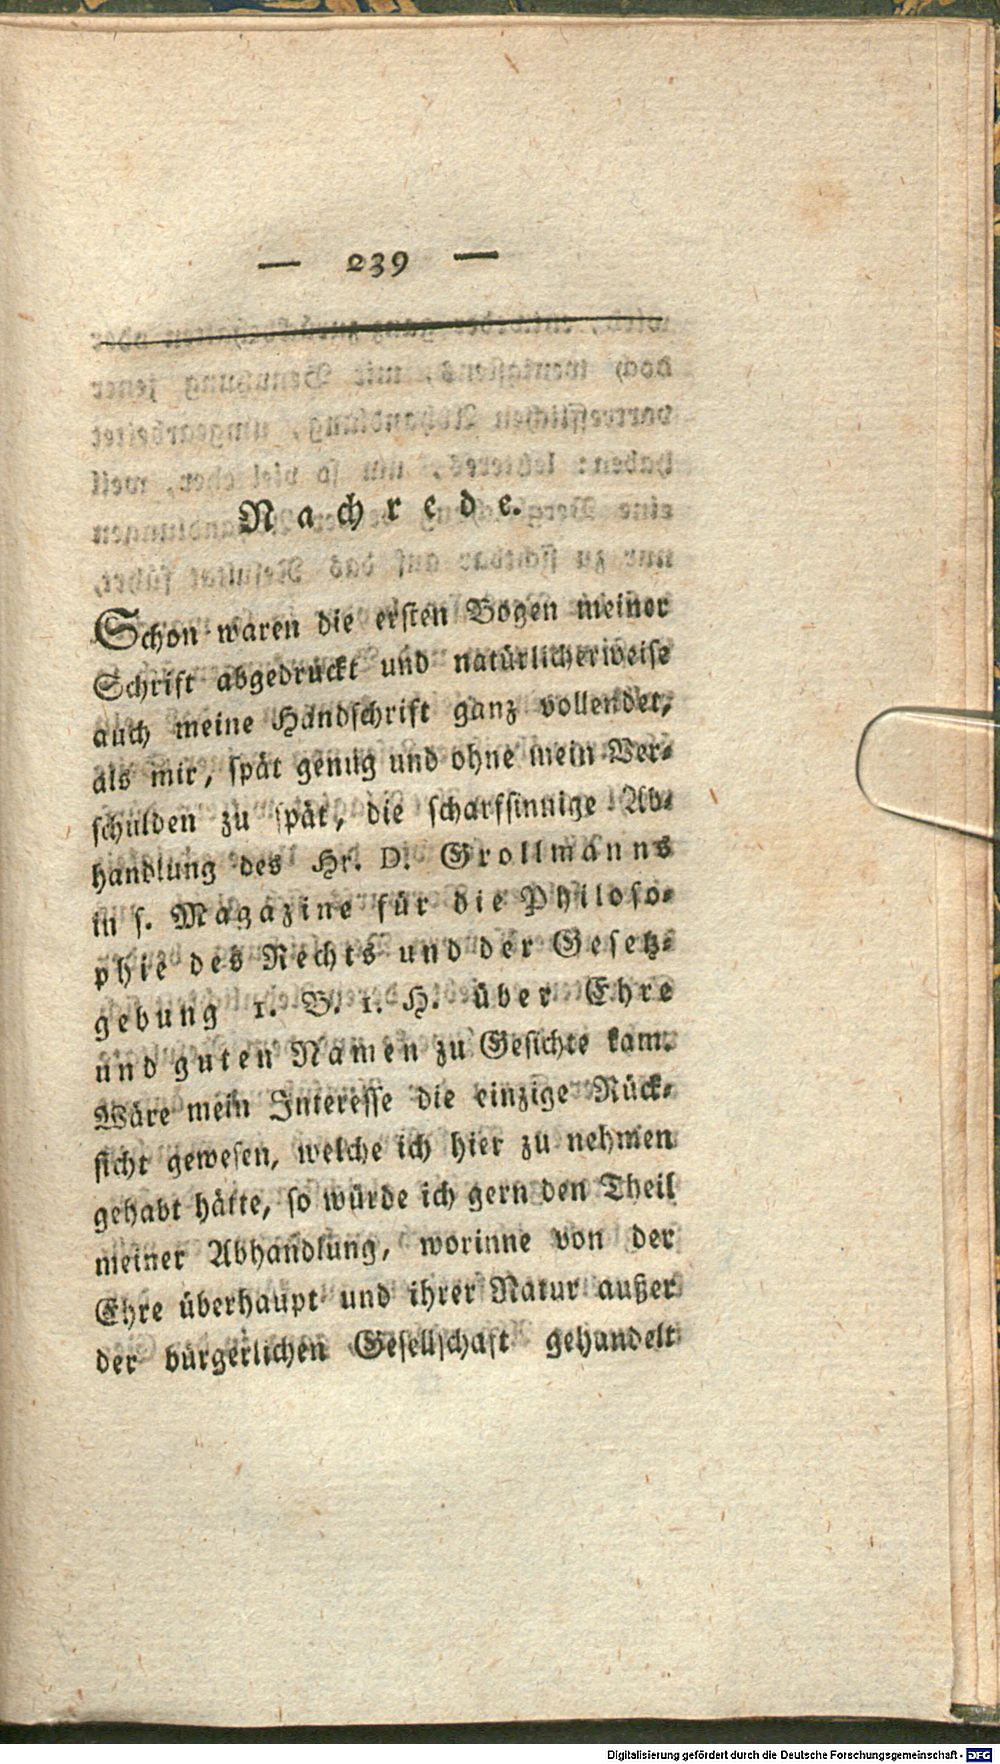 — 239 —
Nachrede.
Schon waren die ersten Bogen meiner
Schrift abgedruckt und natürlicherweise
auch meine Handschrift ganz vollendet,
als mir, spät genug und ohne mein Ver-
schulden zu spät, die scharfsinnige Ab-
handlung des Hr. D. Grollmanns
in s. Magazine für die Philoso-
phie des Rechts und der Gesetz-
gebung 1. B. 1. H. über Ehre
und guten Namen zu Gesichte kam.
Wäre mein Interesse die einzige Rück-
sicht gewesen, welche ich hier zu nehmen
gehabt hätte, so würde ich gern den Theil
meiner Abhandlung, worinne von der
Ehre überhaupt und ihrer Natur außer
der bürgerlichen Gesellschaft gehandelt
Digitalisierung gefördert durch die Deutsche Forschungsgemeinschaft - DFG